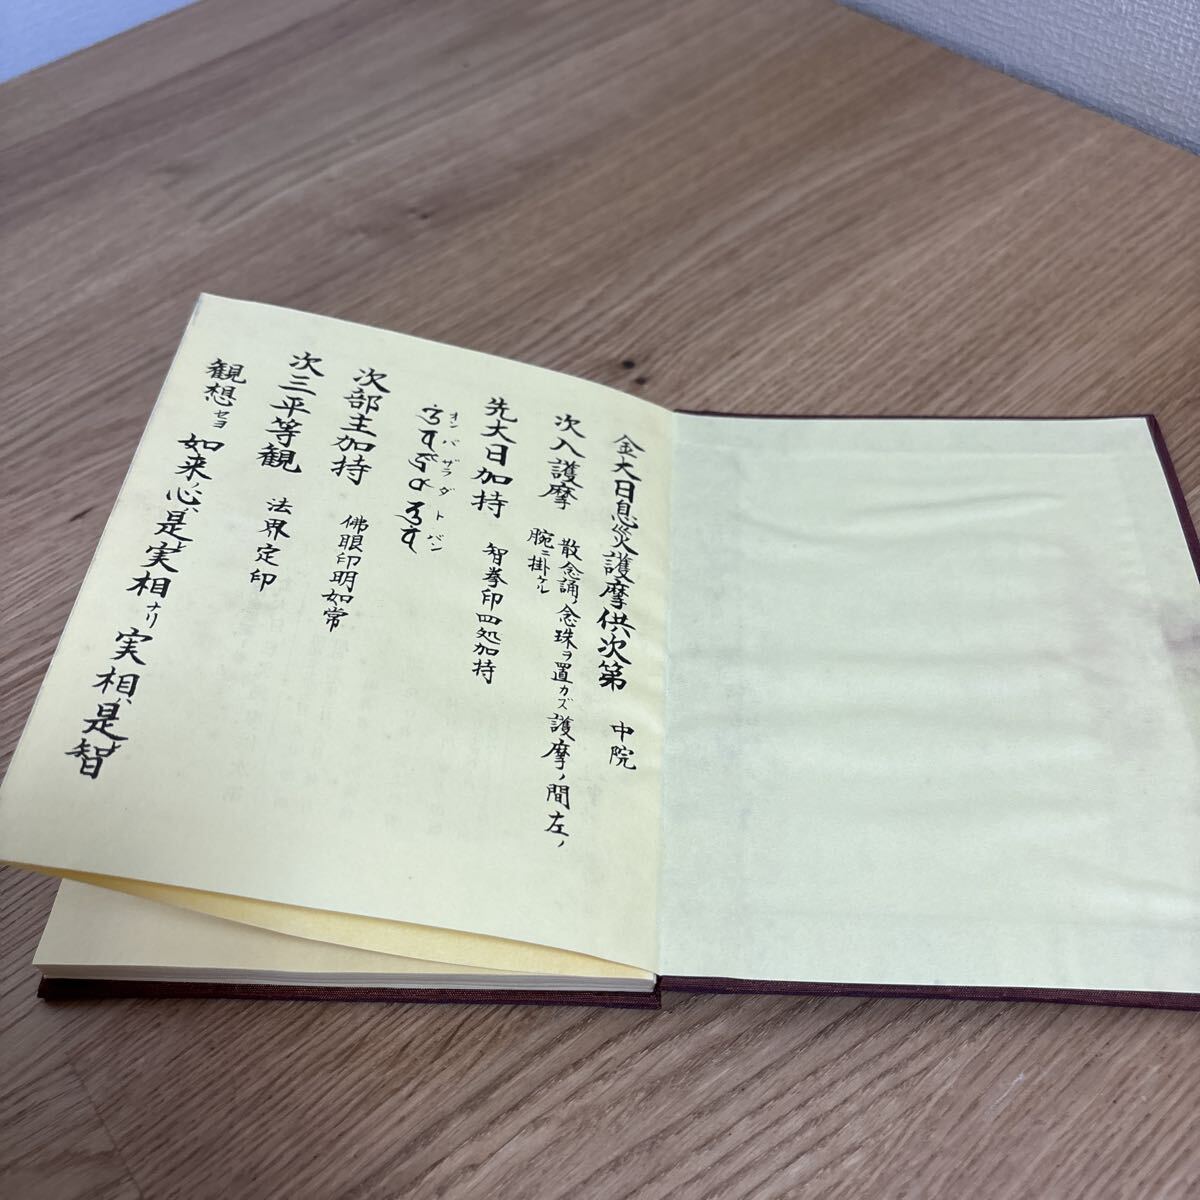 金大日息災護摩供次第 中院
次入護摩 散念誦ノ念珠ヲ置カズ護摩ノ間左ノ
腕ニ掛ケル
先大日加持 智拳印四処加持
オンバザラダトバン
次部主加持 佛眼印明如常
次三平等観 法界定印
観想セヨ 如来ノ心ハ是レ実相ナリ 実相ハ是レ智